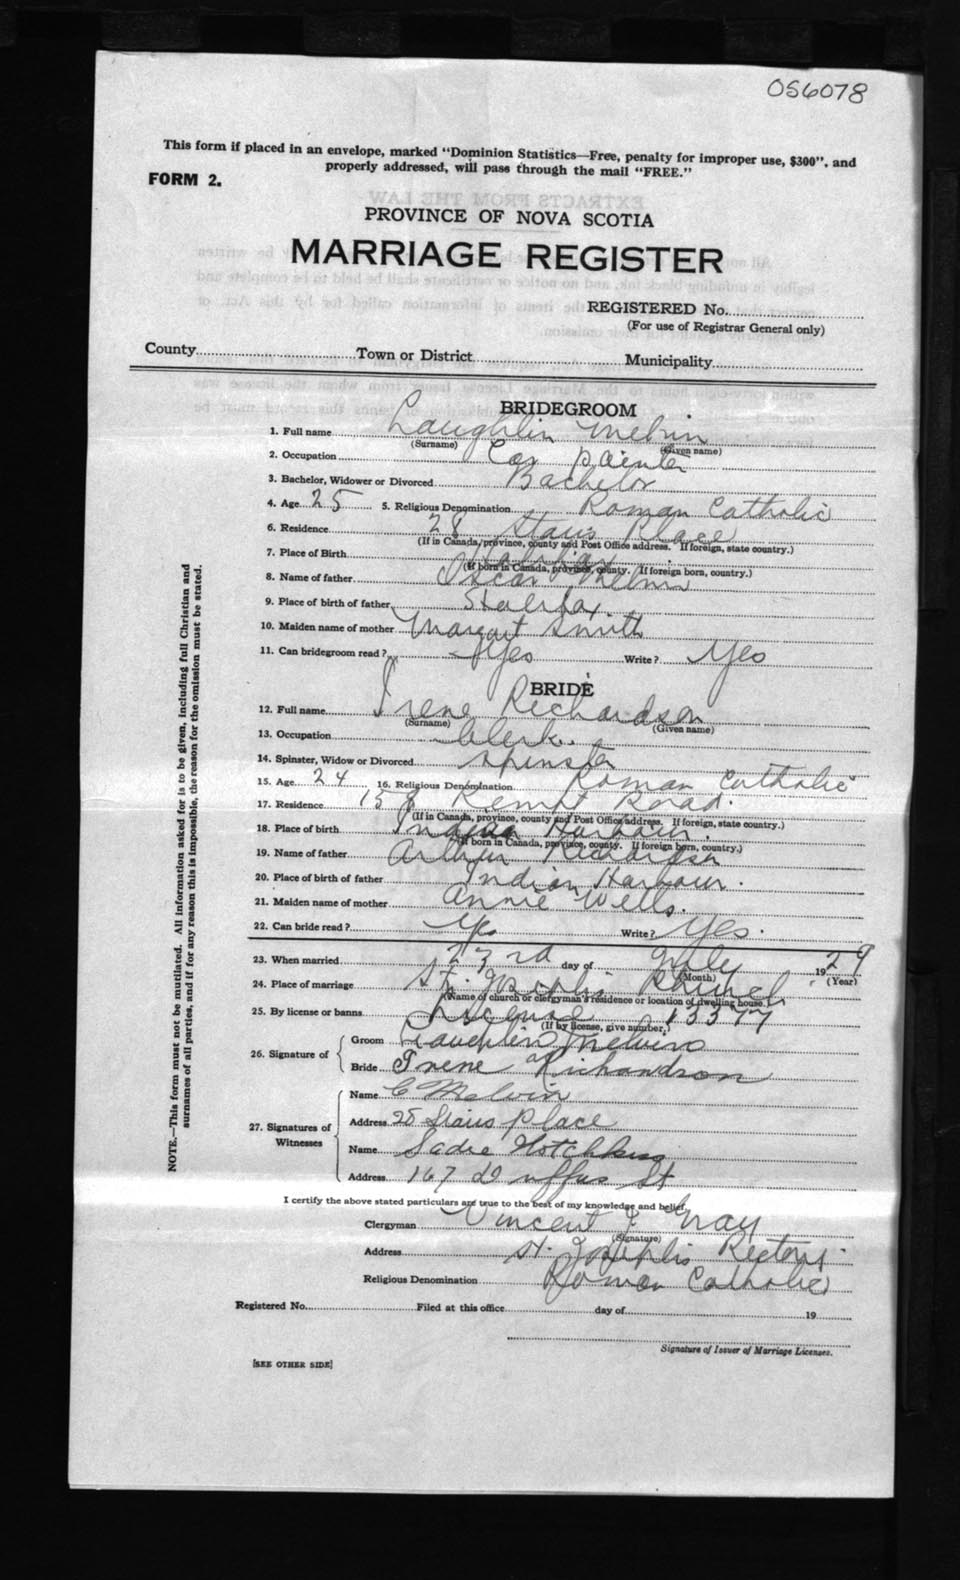 056078
This form if placed in an envelope, marked "Dominion Statistics—Free, penalty for improper use, $300", and
properly addressed, will pass through the mail "FREE."
FORM 2.
PROVINCE OF NOVA SCOTIA
MARRIAGE REGISTER
REGISTERED No.
(For use of Registrar General only)
County Town or District Municipality
BRIDEGROOM
1. Full name Laughlin Melvin
(Surname) (Given name)
2. Occupation Car painter
3. Bachelor, Widower or Divorced Bachelor
4. Age 25 5. Religious Denomination Roman Catholic
6. Residence 28 Stairs Place
(If in Canada, province, county and Post Office address. If foreign, state country.)
7. Place of Birth Halifax
(If born in Canada, province, county. If foreign born, country.)
8. Name of father Oscar Melvin
9. Place of birth of father Halifax.
10. Maiden name of mother Margaret Smith
11. Can bridegroom read? Yes Write? Yes
BRIDE
12. Full name Irene Richardson
(Surname) (Given name)
13. Occupation Clerk.
14. Spinster, Widow or Divorced Spinster
15. Age 24 16. Religious Denomination Roman Catholic
17. Residence 158 Kempt Road.
(If in Canada, province, county and Post Office address. If foreign, state country.)
18. Place of birth Indian Harbour.
(If born in Canada, province, county. If foreign born, country.)
19. Name of father Arthur Richardson
20. Place of birth of father Indian Harbour.
21. Maiden name of mother Annie Wells.
22. Can bride read? Yes Write? Yes.
23. When married 23rd day of July 1929
(Month) (Year)
24. Place of marriage St. Joseph's Church
(Name of church or clergyman's residence or location of dwelling house.)
25. By license or banns License 13377
(If by license, give number.)
26. Signature of
Groom Laughlin Melvin
Bride Irene Richardson
27. Signatures of Witnesses
Name C Melvin
Address 28 Stairs place
Name Sadie Hotchkiss
Address 167 Duffus St
I certify the above stated particulars are true to the best of my knowledge and belief.
Clergyman Vincent J. Gray
(Signature)
Address St. Joseph's Rectory.
Religious Denomination Roman Catholic
Registered No. Filed at this office day of 19
Signature of Issuer of Marriage Licenses.
[SEE OTHER SIDE]
NOTE.—This form must not be mutilated. All information asked for is to be given, including full Christian and
surnames of all parties, and if for any reason this is impossible, the reason for the omission must be stated.